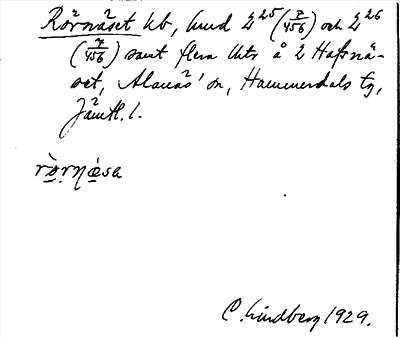 Rörnäset hb, hmd 2²⁵ (7/456) och 2²⁶
(7/456) samt flera lhtr å 2 Hafsnä-
set, Alanäs' sn, Hammerdals tg,
Jämtl. l.
rò̤rnǽsa
C. Lindberg 1929.